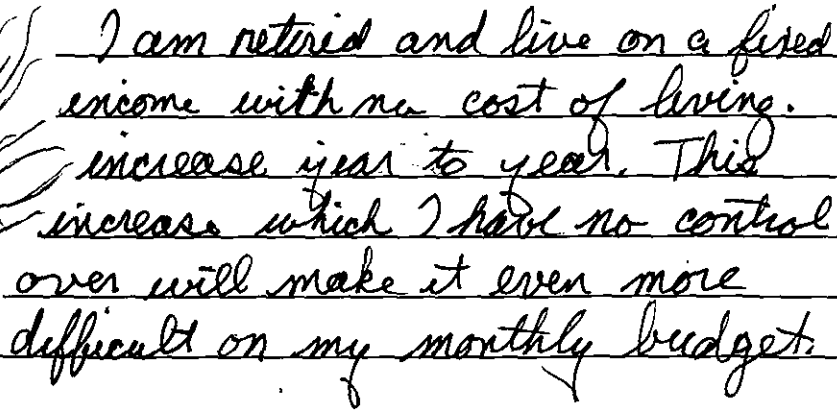 I am retired and live on a fixed
income with no cost of living.
increase year to year. This
increase which I have no control
over will make it even more
difficult on my monthly budget.